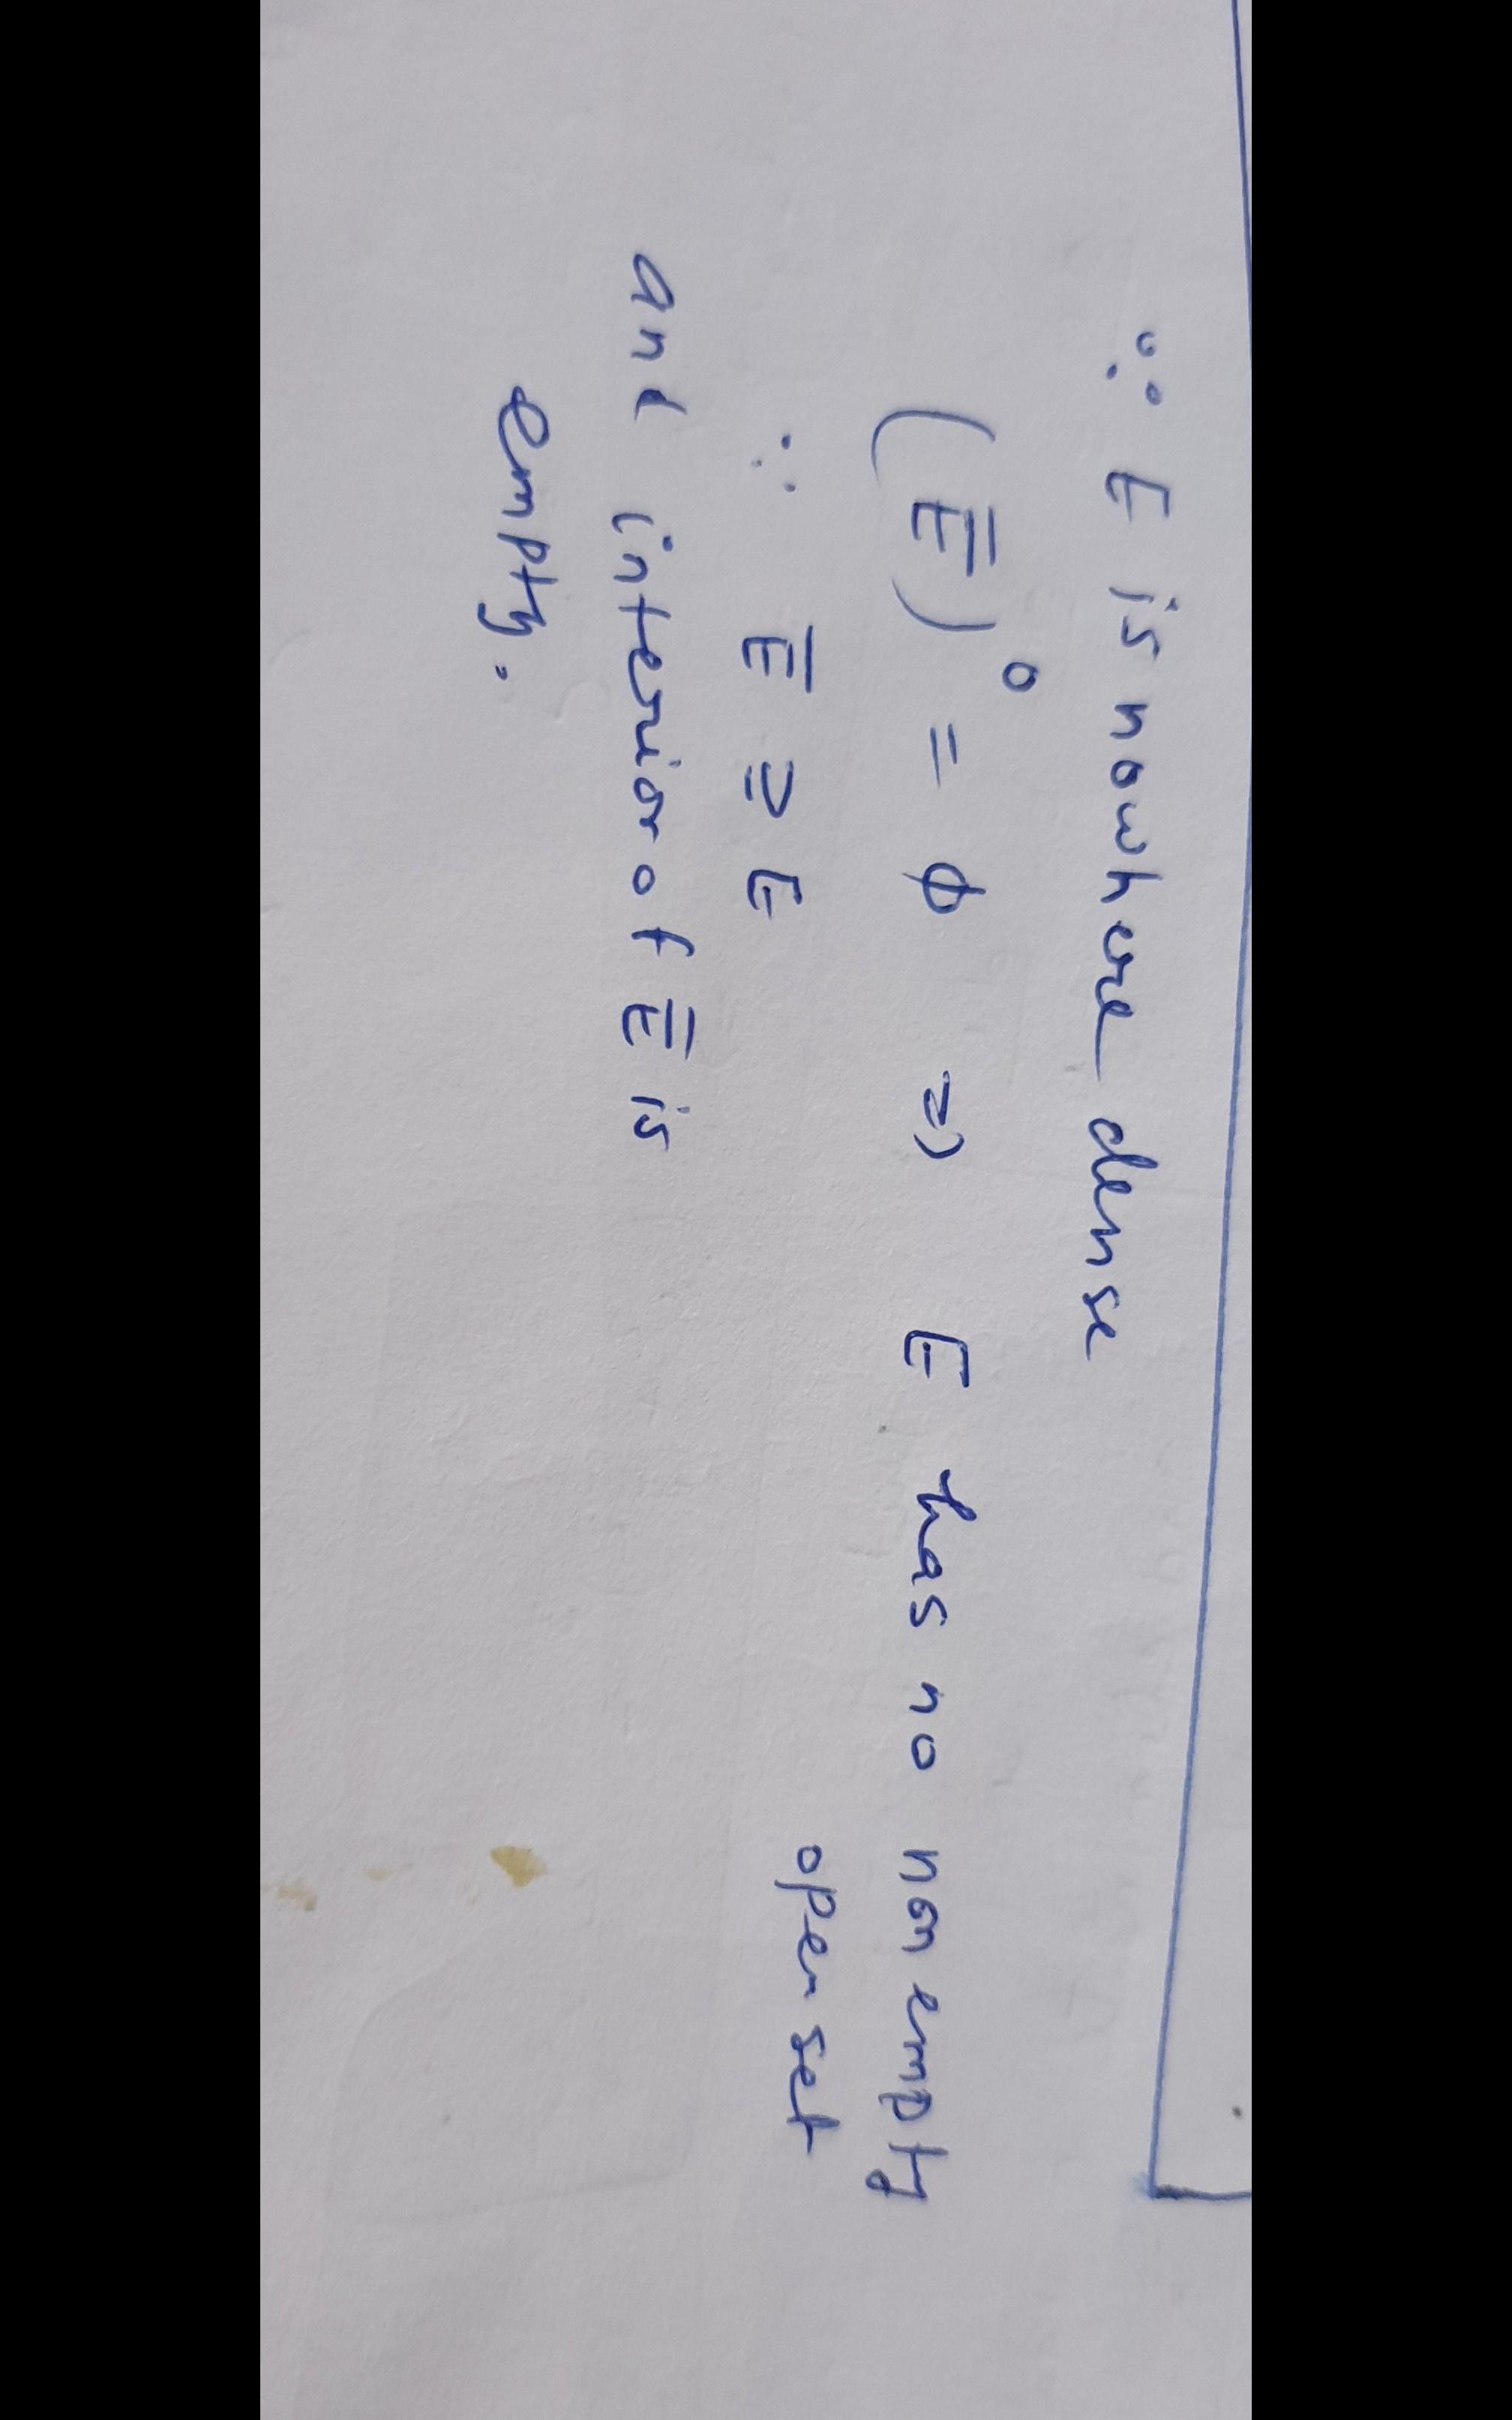 ∵ E is nowhere dense
(E̅)° = ϕ ⇒ E has no non empty
open set
∵ E̅ ⊇ E
and interior of E̅ is
empty.